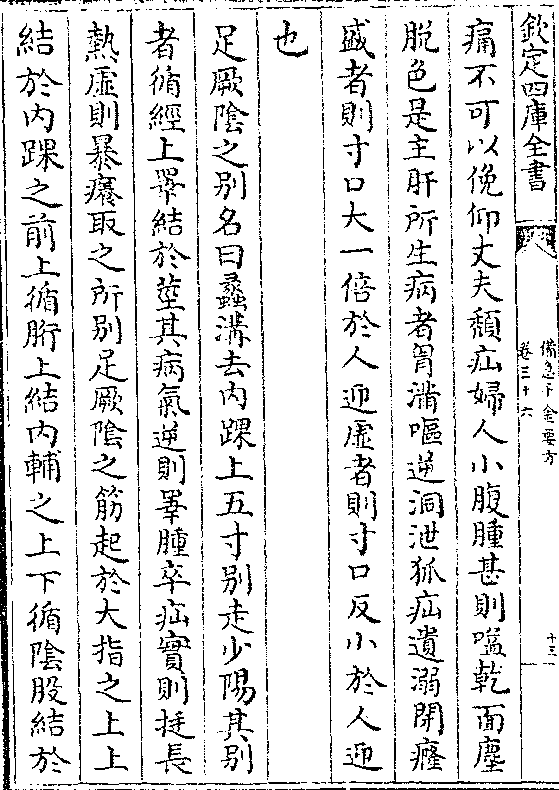 欽定四庫全書
備急千金要方
卷三十六
十三
痛不可以俛仰丈夫㿗疝婦人小腹腫甚則嗌乾面塵
脫色是主肝所生病者胷滿嘔逆洞泄狐疝遺溺閉癃
盛者則寸口大一倍於人迎虛者則寸口反小於人迎
也
足厥陰之别名曰蠡溝去内踝上五寸别走少陽其别
者循經上睪結於莖其病氣逆則睪腫卒疝實則挺長
熱虛則暴癢取之所别足厥陰之筋起於大指之上上
結於内踝之前上循胻上結内輔之上下循陰股結於